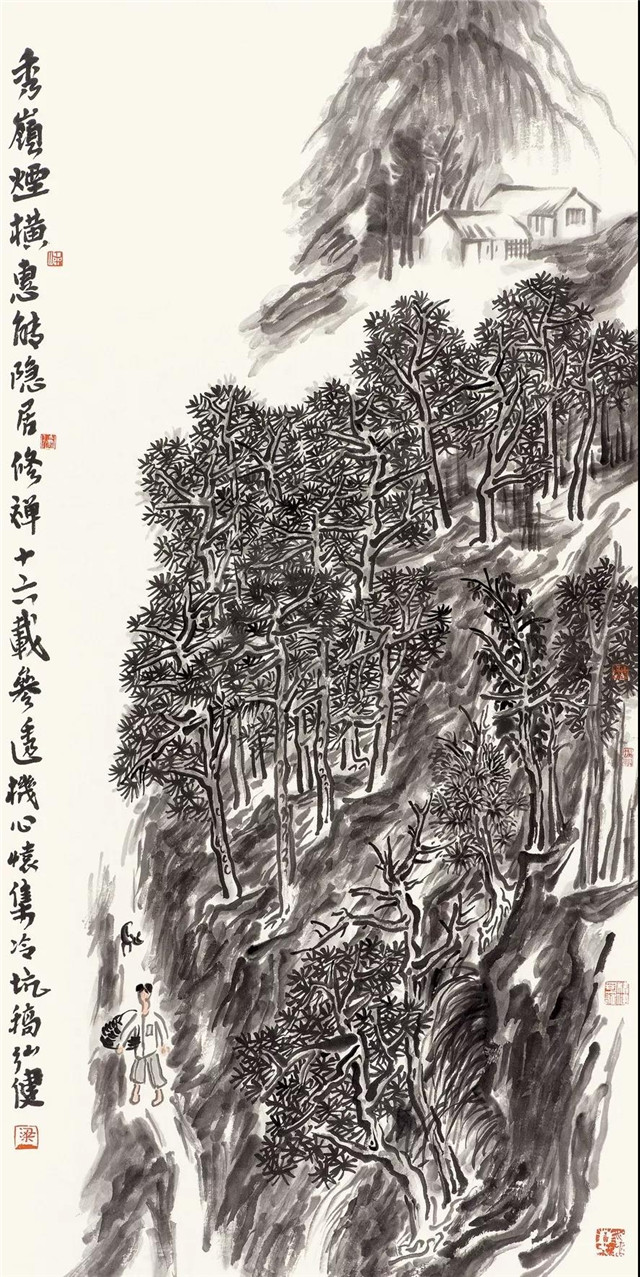 秀嶺煙橫惠能隐居修禪十六載參透機心懷集冷坑稿弘健
梁